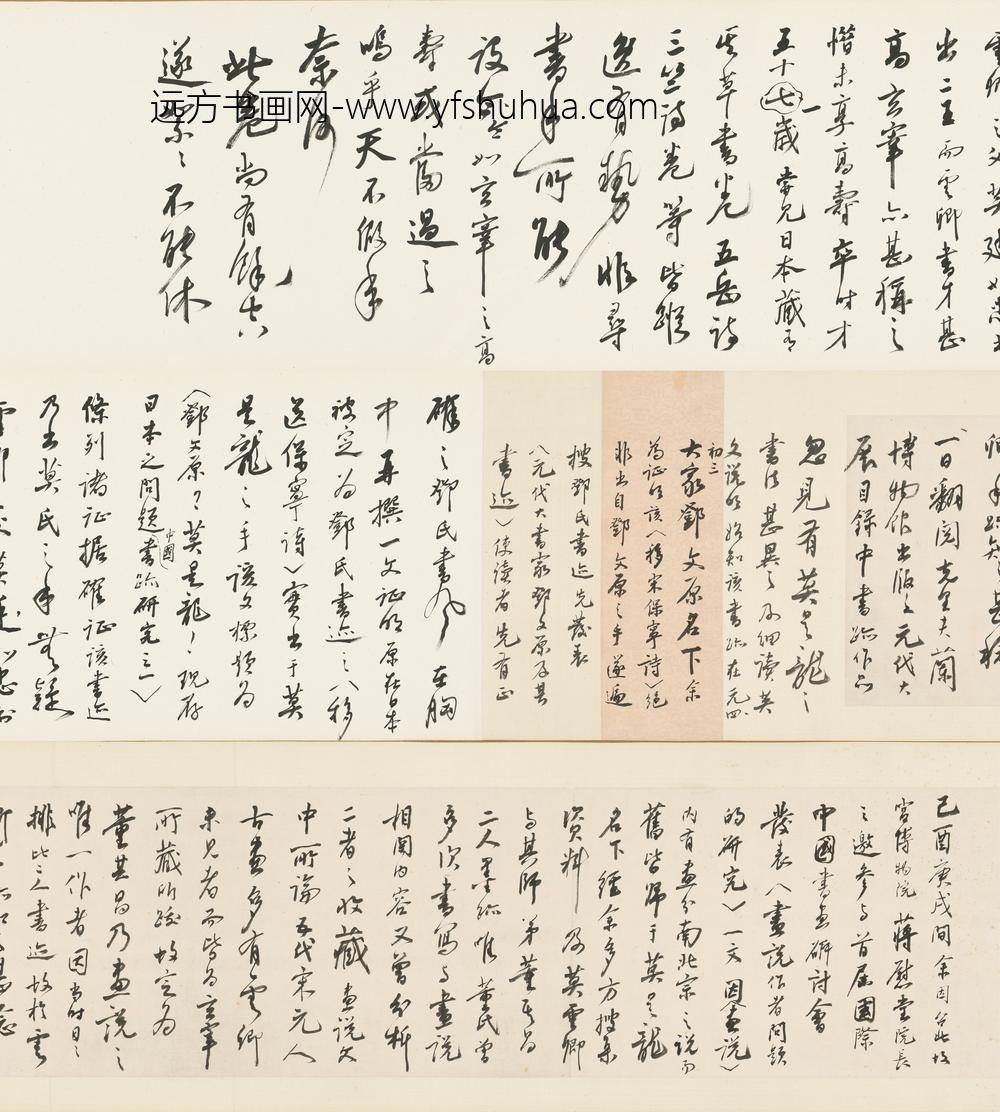 远方书画网-www.yfshuhua.com
出二王而雲卿書才甚
高玄宰亦甚稱之
惜未享高壽卒時才
五十七歲嘗見日本藏有
其草書卷五岳詩
三竺詩卷等皆縱
逸有勢非尋
書手所能
設令如玄宰之高
壽或當過之
嗚乎天不假年
奈何
此卷尚有餘
遂絮〻不能休
一日翻閱克里夫蘭
博物館出版之元代大
展目錄中書跡作品
忽見有莫是龍之
書法甚異之及細讀英
文說明始知該書跡在元四
初三
大家鄧文原名下余
為证明該〈移宋保寧詩〉絕
非出自鄧文原之手遂遍
搜鄧氏書迹先發表
〈元代大書家鄧文原及其
書迹〉使讀者先有正
確之鄧氏書風在胸
中再撰一文证明原在日本
被定為鄧氏書迹之〈移
送保寧詩〉實出于莫
是龍之手該文標題為
〈鄧文原？莫是龍！現存
日本之問題中國書跡研究之一〉
條列諸证据確证該書迹
乃出莫氏之手無疑
己酉庚戌間余因台北故
宮博物院蔣慰堂院長
之邀參与首屆國際
中國書畫研討會
發表〈畫說作者問題
的研究〉一文因〈畫說〉
內有畫分南北宗之說而
舊皆歸于莫是龍
名下經余多方搜集
資料及莫雲卿
与其師弟董其昌
二人墨跡唯董氏曾
多次書寫与畫說
相関內容又曾分析
二者之收藏畫說文
中所論五代宋元人
古畫多有雲卿
未見者而皆為玄宰
所藏所跋故定為
董其昌乃畫說之
唯一作者因當時
排比三人書迹故於雲